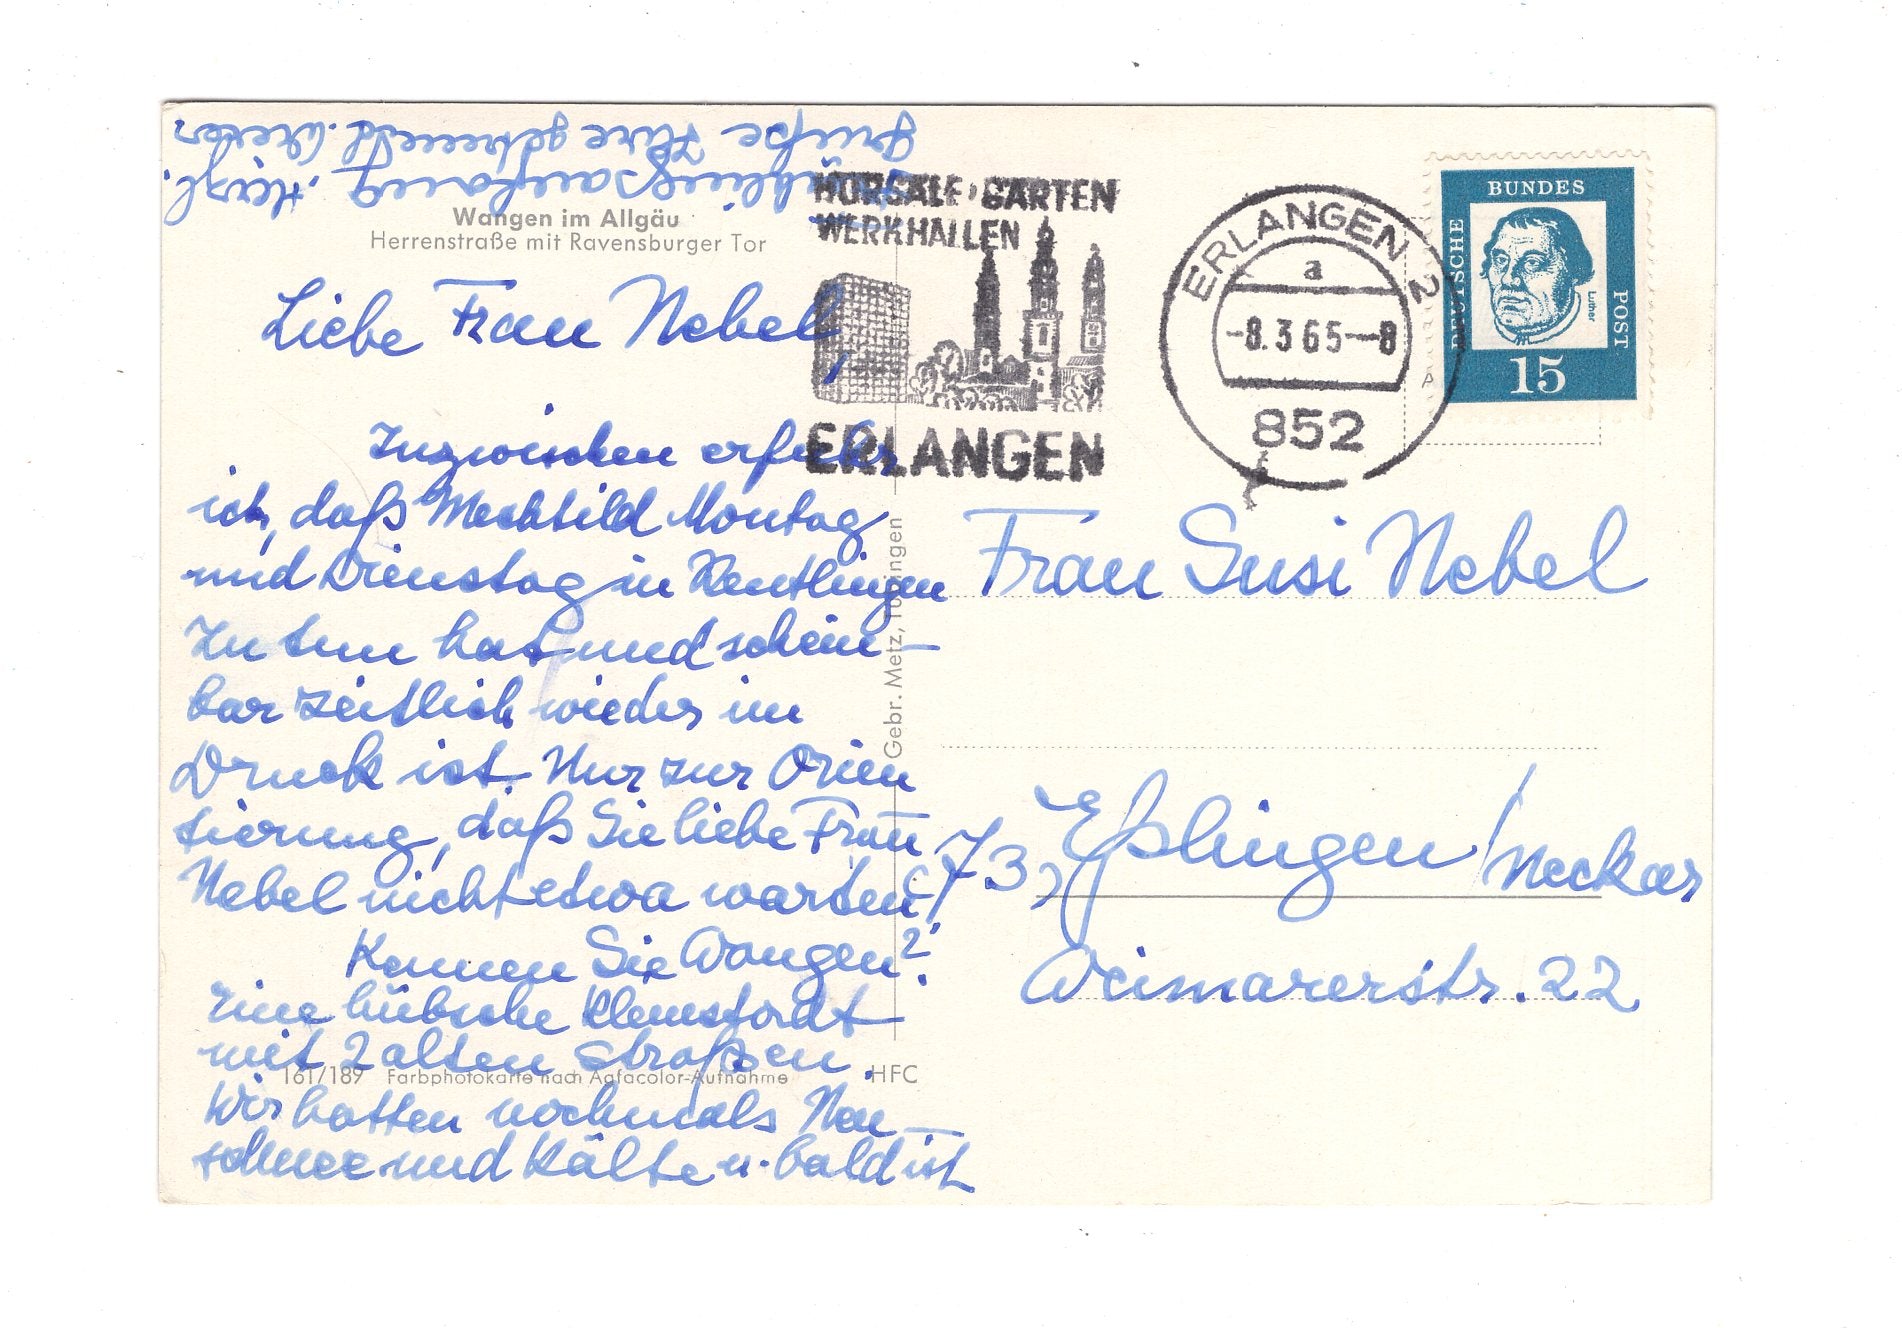 Wangen im Allgäu
Herrenstraße mit Ravensburger Tor
Liebe Frau Nebel,
Inzwischen erfuhr
ich, daß Mechtild Montag
und Dienstag in Reutlingen
zu tun hat und schein-
bar zeitlich wieder im
Druck ist. Nur zur Orien
tierung, daß Sie liebe Frau
Nebel nicht etwa warten!
Kennen Sie Wangen?
Eine hübsche Kleinstadt
mit 2 alten Straßen.
Wir hatten nochmals Neu-
schnee und Kälte u. bald ist
Frühlingsanfang. Herzl.
Grüße Ihre
161/189 Farbphotokarte nach Agfacolor-Aufnahme
HFC
Gebr. Metz, Tübingen
HÖRSÄLE · GÄRTEN
WERKHALLEN
ERLANGEN
ERLANGEN 2
a
-8.3.65--8
852
DEUTSCHE
BUNDES
POST
Luther
15
A
Frau Susi Nebel
73, Eßlingen/Neckar
Weimarerstr. 22